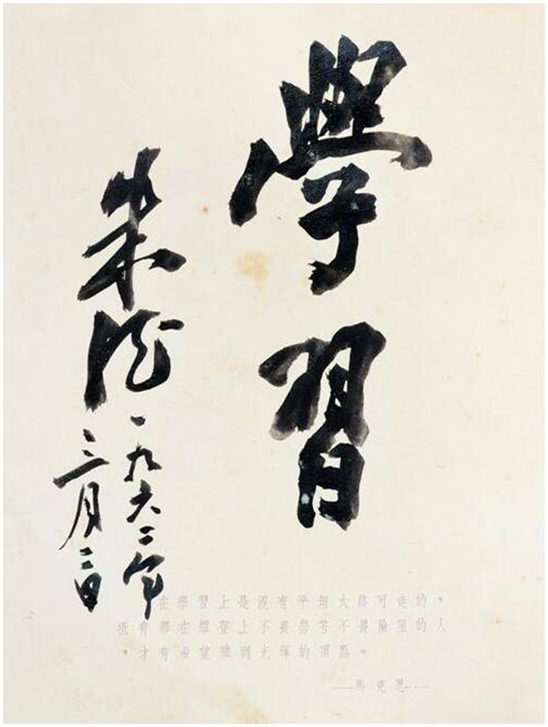 學習
朱德
一九六二年
三月三日
在學習上是沒有平坦大路可走的，
祇有那在攀登上不畏勞苦不畏險阻的人
，才有希望攀到光輝的頂點。
——馬克思——